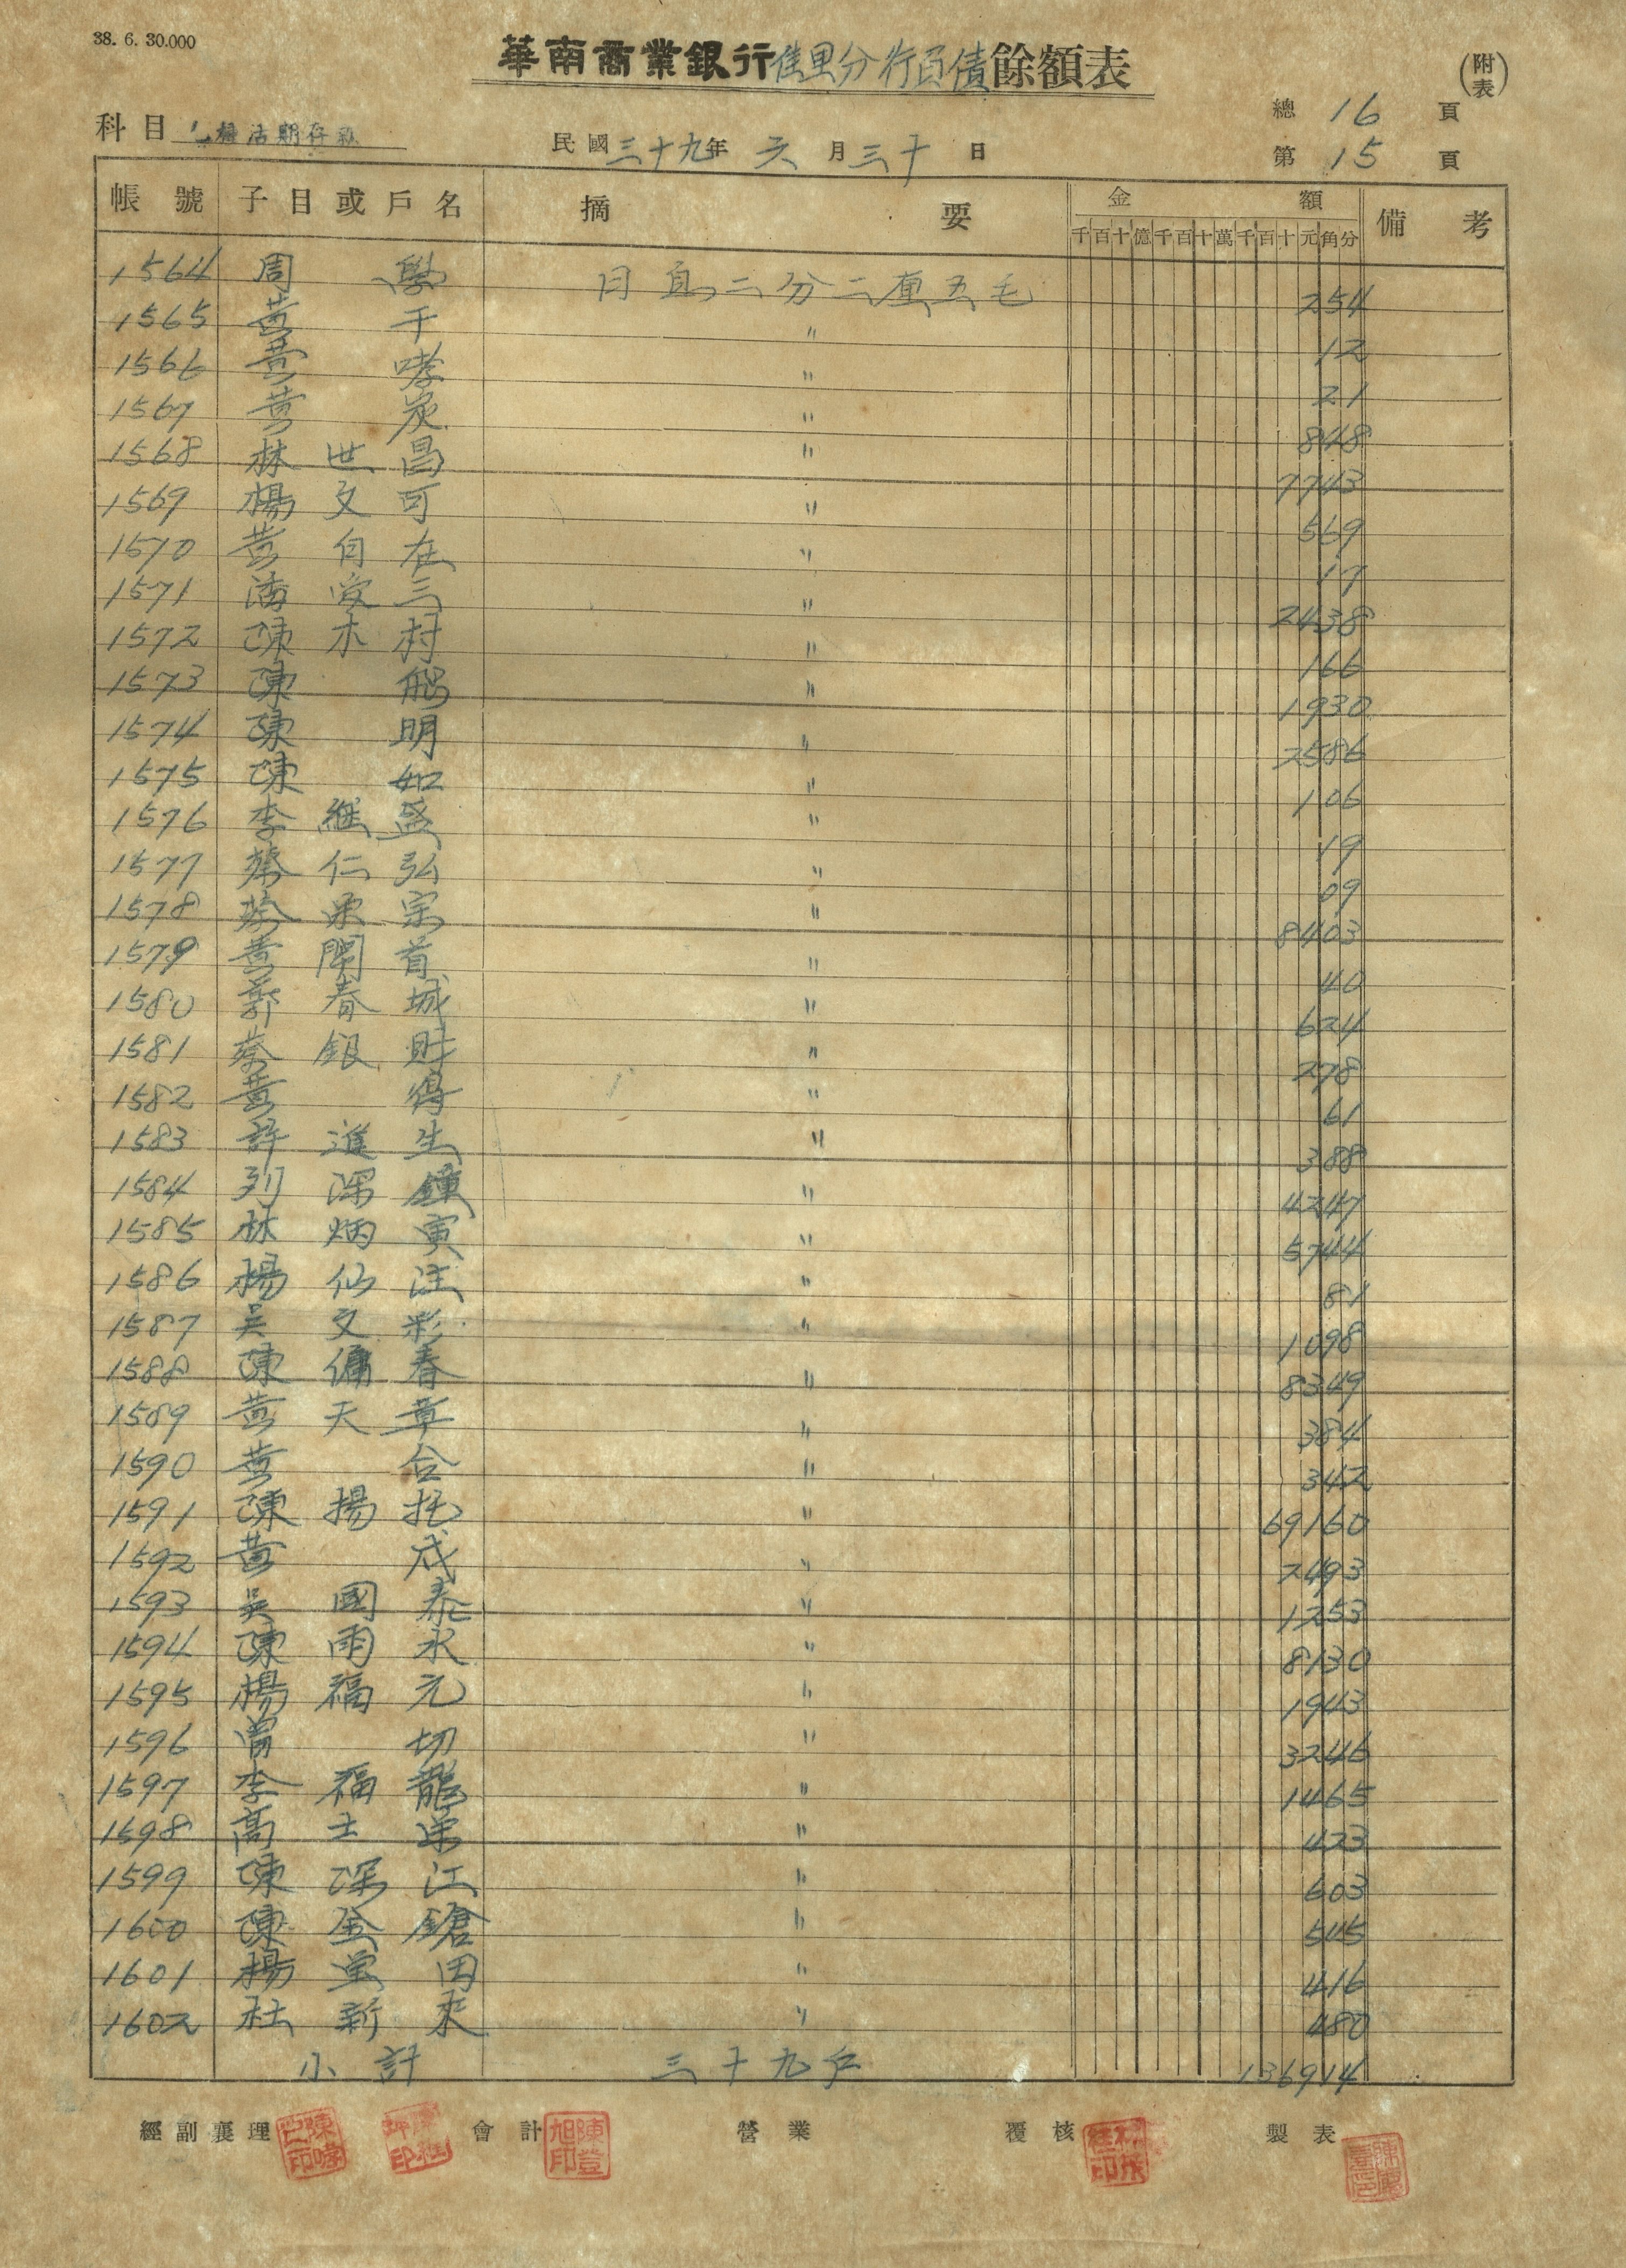 38. 6. 30.000
華南商業銀行佳里分行負債餘額表
(附表)
總 16 頁
科目 乙種活期存款
民國三十九年 六 月 三十 日
第 15 頁
帳號 子目或戶名 摘要 金額 備考
千百十億千百十萬千百十元角分
1564 周 學 日息二分二厘五毛 254
1565 黃 千 〃 12
1566 黃 哮 〃 21
1567 黃 炭 〃 848
1568 林世昌 〃 7743
1569 楊文可 〃 569
1570 黃自在 〃 17
1571 潘受三 〃 2438
1572 陳木村 〃 166
1573 陳 〃 1930
1574 陳 明 〃 2586
1575 陳 如 〃 106
1576 李繼盛 〃 19
1577 蔡仁弘 〃 09
1578 蔡栄宗 〃 8403
1579 黃開首 〃 40
1580 郭春城 〃 624
1581 蔡銀財 〃 278
1582 黃 得 〃 61
1583 許進生 〃 388
1584 列深鐘 〃 4247
1585 林炳寅 〃 5744
1586 楊仙注 〃 81
1587 吳文彩 〃 1098
1588 陳傭春 〃 8349
1589 黃天章 〃 384
1590 黃 合 〃 342
1591 陳揚托 〃 69160
1592 黃 成 〃 2493
1593 吳國泰 〃 1253
1594 陳雨永 〃 8130
1595 楊福元 〃 1943
1596 曾 切 〃 3246
1597 李福龍 〃 1465
1598 高士栄 〃 423
1599 陳深江 〃 603
1600 陳金鎗 〃 545
1601 楊堂田 〃 416
1602 杜新來 〃 480
小計 三十九戶 136914
經副襄理 會計 陳登旭印 營業 覆核 製表